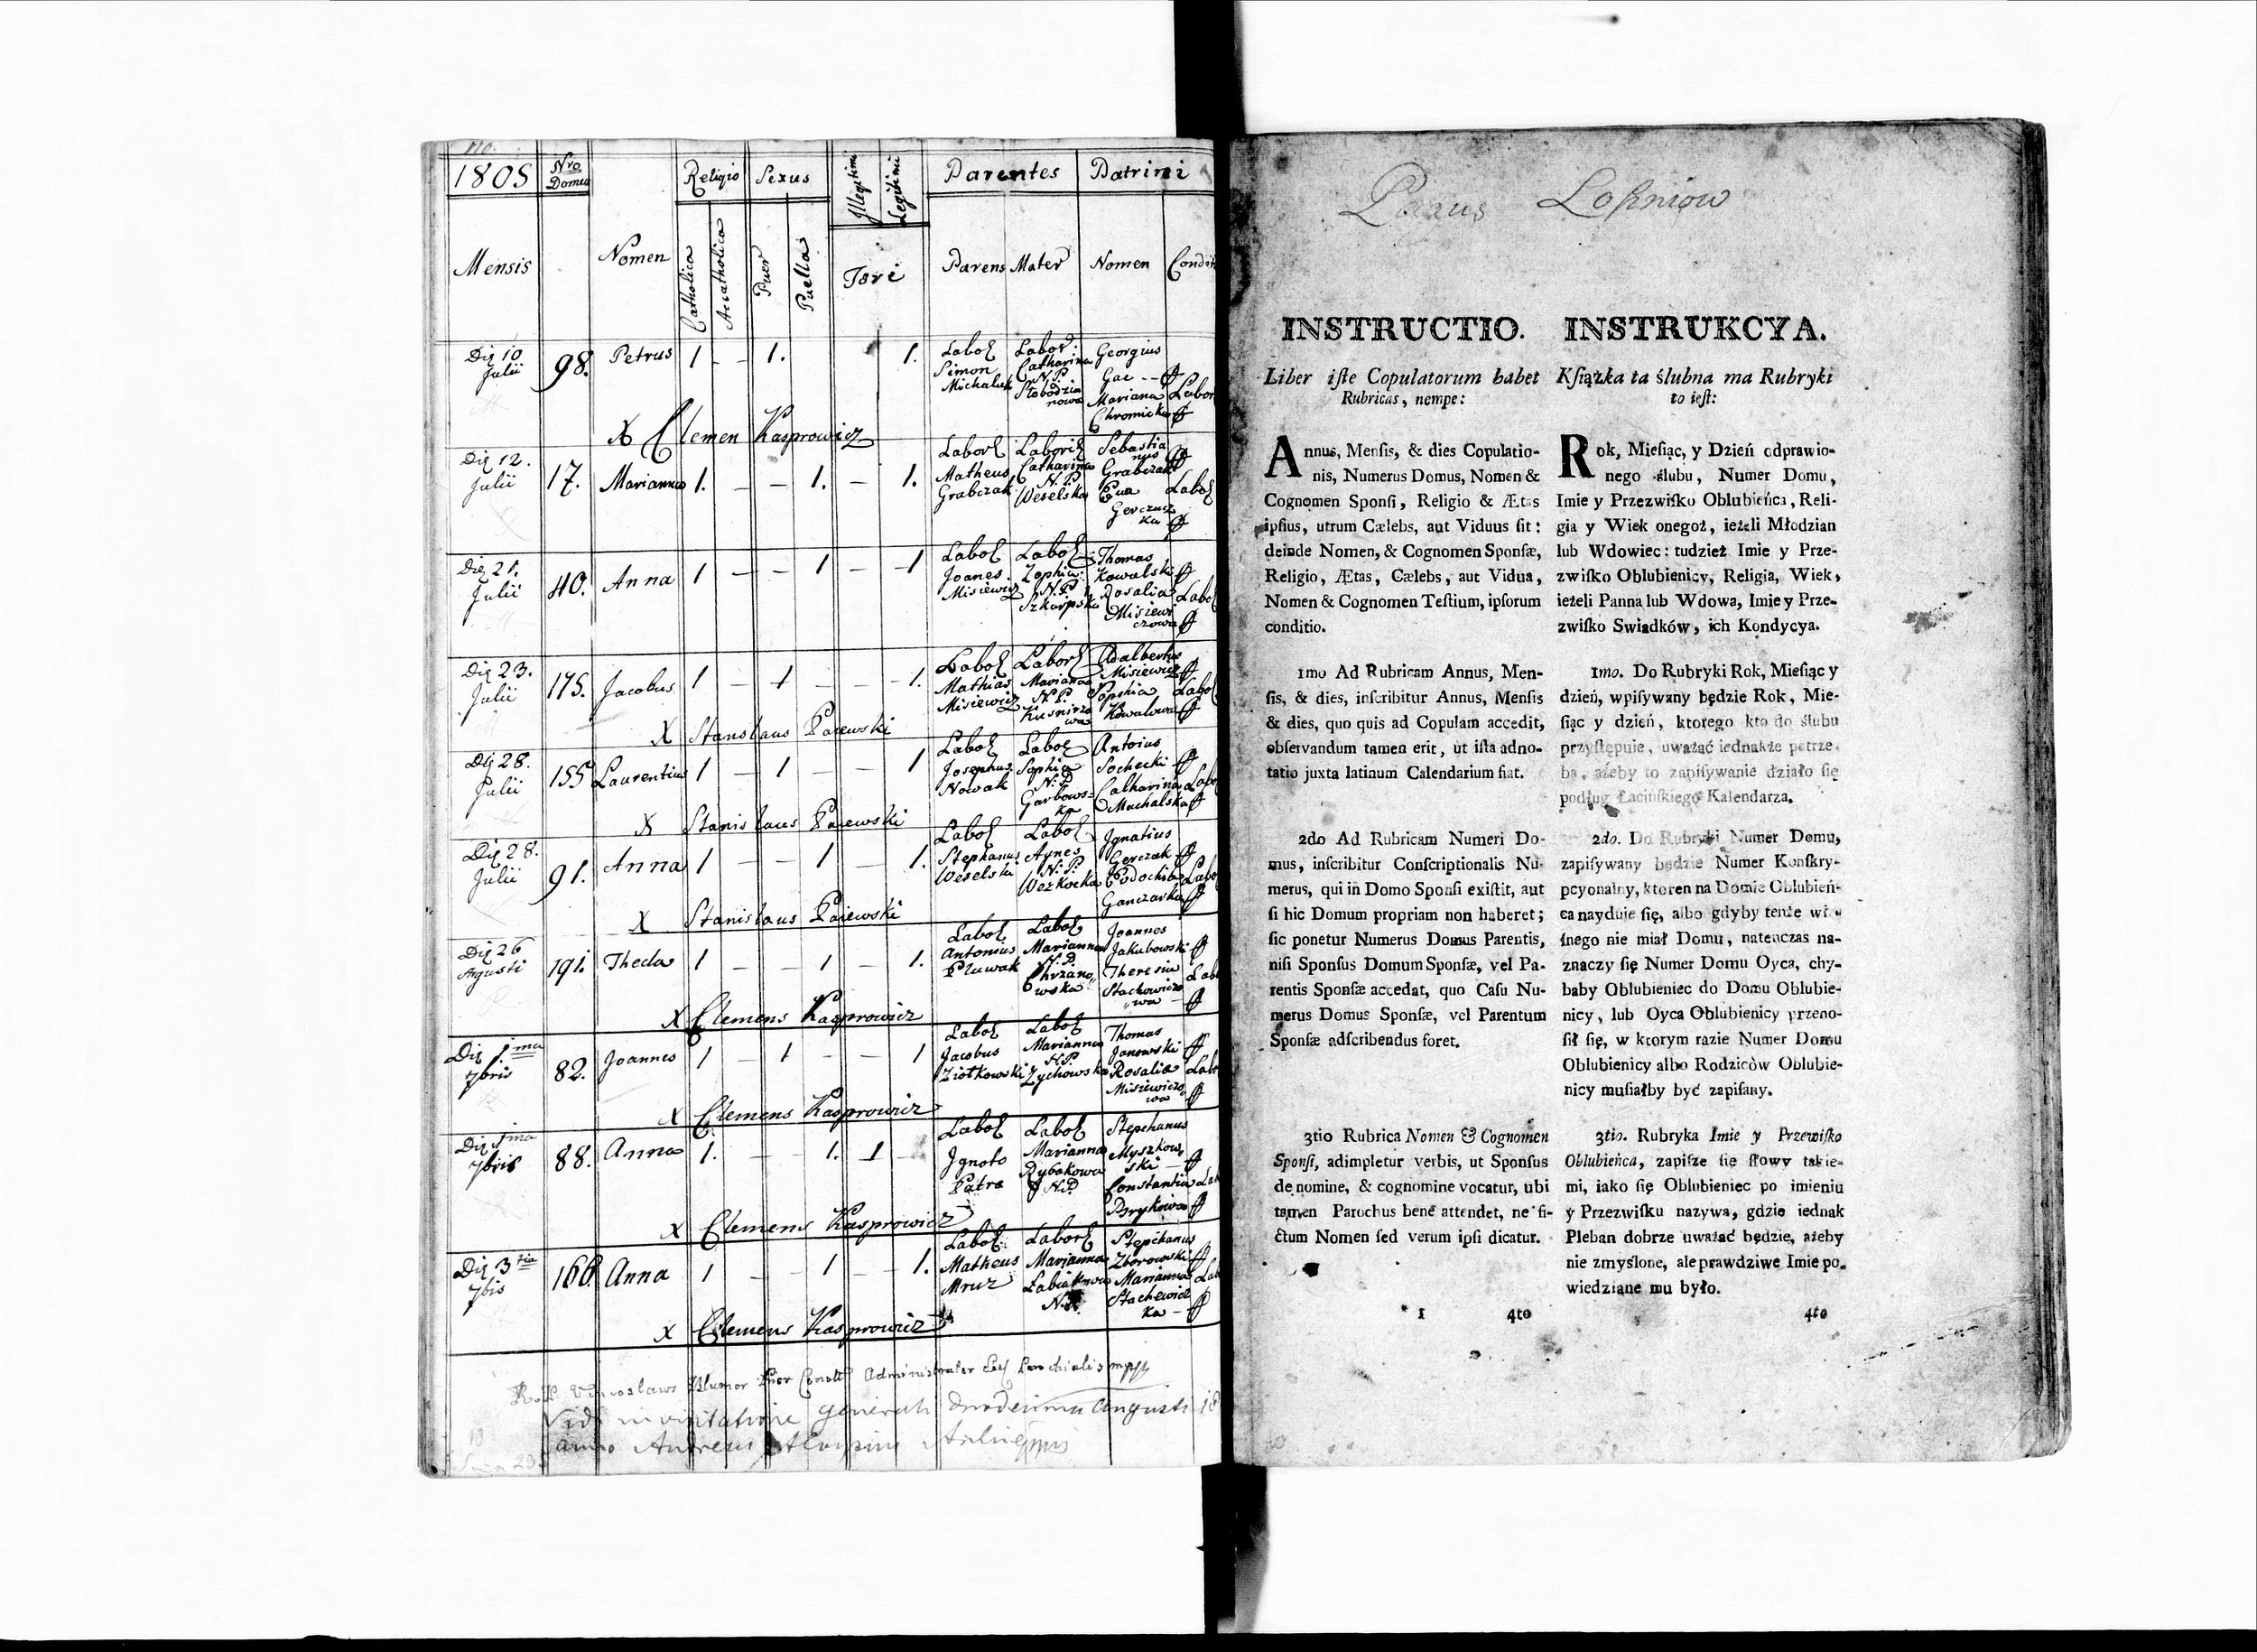 110.
1805 Nro Domus Religio Sexus Illegitimi Legitimi Parentes Patrini
Mensis Nomen Catholica Accatholica Puer Puella Tori Parens Mater Nomen Condit
Die 10 Julii 98. Petrus 1 – – 1. 1.
Labor Simon Michaluk
Labor: Catharina N.P. Slobodzianowa
Georgius Gac --
Mariana Chromicka
Labor
X Clemen Kasprowicz
Die 12. Julii 17. Marianna 1. – – 1. – 1.
Labor Matheus Grabczak
Labor Catharina N.P. Weselska
Sebastianus Grabczak
Ewa Gerczuszka
Labor
Die 21. Julii 40. Anna 1 – – 1 – 1
Labor Joanes Misiewicz
Labor Zophia N.P. Szkarpska
Thomas Kowalski
Rosalia Misiewiczowa
Labor
Die 23. Julii 175. Jacobus 1 – 1 – – 1.
Labor Mathias Misiewicz
Labor Marianna N.P. Kusnirzowa
Adalbertus Misiewicz
Sophia Kowalowa
Labor
X Stanslaus Paiewski
Die 28. Julii 155 Laurentius 1 – 1 – – 1
Labor Josephus Nowak
Labor Sophia N.P. Garbowska
Antoius Sochecki
Catharina Muchalska
Labor
X Stanislaus Paiewski
Die 28. Julii 91. Anna 1 – – 1 – 1.
Labor Stephanus Weselski
Labor Agnes N.P. Wezkocka
Jgnatius Gerczak
Eodochia Ganczarka
Labor
X Stanislaus Paiewski
Die 26 Augusti 191. Thecla 1 – – 1 – 1.
Labor Antonius Pluwak
Labor Marianna N.P. Chrzanowska
Joannes Jakubowski
Theresia Stachowiczowa
Lab
X Clemens Kasprowicz
Die 1.ma 7bris 82. Joannes 1 – 1 – – 1
Labor Jacobus Ziotkowski
Labor Marianna N.P. Zychowska
Thomas Janowski
Rosalia Misiewiczowa
Labo
X Clemens Kasprowicz
Die 1ma 7bris 88. Anna 1. – – 1. 1 –
Labor Jgnoto Patre
Labor Marianna Rybakowa N.P.
Stephanus Myszkowski
Constantia Brykowa
Lab
X Clemens Kasprowicz
Die 3tia 7bis 166. Anna 1 – – 1 – – 1.
Labor Matheus Mruz
Labor Marianna Labiakowa N.P.
Stephanus Zborowski
Marianna Stachewiczka
Lab
X Clemens Kasprowicz
Administrator
in visitatione generali duodecima Augusti 18
Parus Loszniow
INSTRUCTIO.
Liber iſte Copulatorum habet
Rubricas, nempe:
Annus, Menſis, & dies Copulatio-
nis, Numerus Domus, Nomen &
Cognomen Sponſi, Religio & Ætas
ipſius, utrum Cælebs, aut Viduus ſit:
deinde Nomen, & Cognomen Sponſæ,
Religio, Ætas, Cælebs, aut Vidua,
Nomen & Cognomen Teſtium, ipſorum
conditio.
1mo Ad Rubricam Annus, Men-
ſis, & dies, inſcribitur Annus, Menſis
& dies, quo quis ad Copulam accedit,
obſervandum tamen erit, ut iſta adno-
tatio juxta latinum Calendarium fiat.
2do Ad Rubricam Numeri Do-
mus, inſcribitur Conſcriptionalis Nu-
merus, qui in Domo Sponſi exiſtit, aut
ſi hic Domum propriam non haberet;
ſic ponetur Numerus Domus Parentis,
niſi Sponſus Domum Sponſæ, vel Pa-
rentis Sponſæ accedat, quo Caſu Nu-
merus Domus Sponſæ, vel Parentum
Sponſæ adſcribendus foret.
3tio Rubrica Nomen & Cognomen
Sponſi, adimpletur verbis, ut Sponſus
de nomine, & cognomine vocatur, ubi
tamen Parochus bene attendet, ne fi-
ctum Nomen ſed verum ipſi dicatur.
1 4to
INSTRUKCYA.
Kſiążka ta ślubna ma Rubryki
to ieſt:
Rok, Mieſiąc, y Dzień odprawio-
nego ślubu, Numer Domu,
Imie y Przezwiſko Oblubieńca, Reli-
gia y Wiek onegoż, ieżeli Młodzian
lub Wdowiec: tudzież Imie y Prze-
zwiſko Oblubienicy, Religia, Wiek,
ieżeli Panna lub Wdowa, Imie y Prze-
zwiſko Swiadków, ich Kondycya.
1mo. Do Rubryki Rok, Mieſiąc y
dzień, wpiſywany będzie Rok, Mie-
ſiąc y dzień, ktorego kto do ślubu
przyſtępuie, uważać iednakże potrze-
ba, ażeby to zapiſywanie działo ſię
podług Łacińſkiego Kalendarza.
2do. Do Rubryki Numer Domu,
zapiſywany będzie Numer Konſkry-
pcyonalny, ktoren na Domie Oblubień-
ca nayduie ſię, albo gdyby tenże wła-
ſnego nie miał Domu, natenczas na-
znaczy ſię Numer Domu Oyca, chy-
baby Oblubieniec do Domu Oblubie-
nicy, lub Oyca Oblubienicy przeno-
ſił ſię, w ktorym razie Numer Domu
Oblubienicy albo Rodziców Oblubie-
nicy muſiałby być zapiſany.
3tio. Rubryka Imie y Przewiſko
Oblubieńca, zapiſze ſię ſłowy takie-
mi, iako ſię Oblubieniec po imieniu
y Przezwiſku nazywa, gdzie iednak
Pleban dobrze uważać będzie, ażeby
nie zmyślone, ale prawdziwe Imie po-
wiedziane mu było.
4to